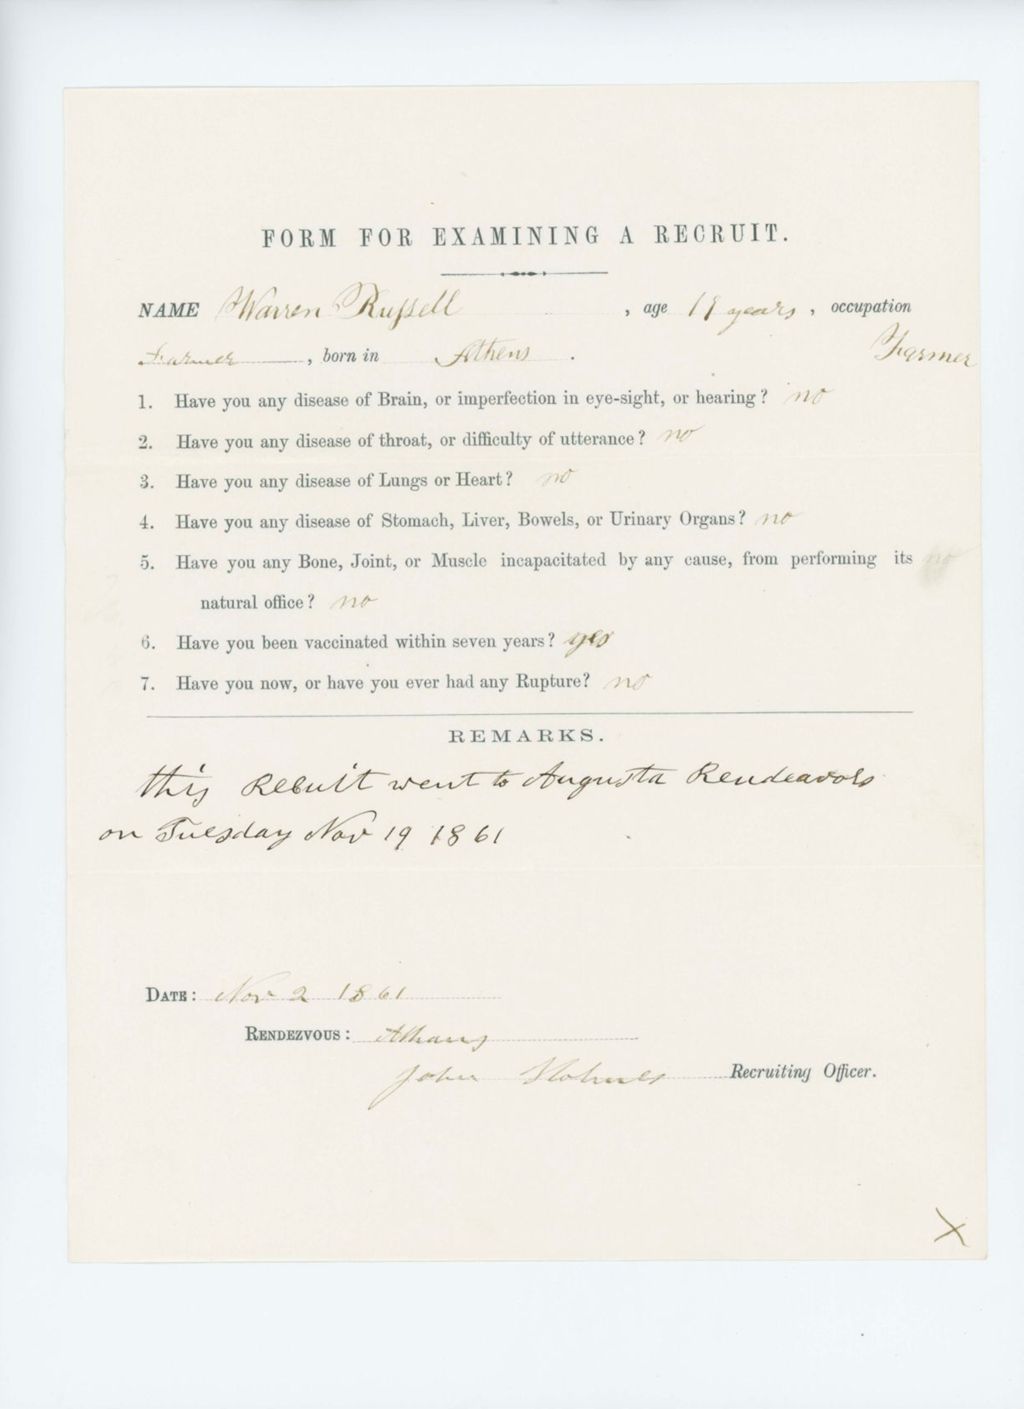 FORM FOR EXAMINING A RECRUIT.
NAME Warren Russell , age years , occupation
Farmer , born in Athens . Farmer
1. Have you any disease of Brain, or imperfection in eye-sight, or hearing? no
2. Have you any disease of throat, or difficulty of utterance? no
3. Have you any disease of Lungs or Heart? no
4. Have you any disease of Stomach, Liver, Bowels, or Urinary Organs? no
5. Have you any Bone, Joint, or Muscle incapacitated by any cause, from performing its no
natural office? no
6. Have you been vaccinated within seven years? yes
7. Have you now, or have you ever had any Rupture? no
REMARKS.
this Recuit went to Augusta Rendeavors
on Tuesday Nov 19 1861
DATE: Nov 2 1861
RENDEZVOUS: Athans
John Holmes Recruiting Officer.
X